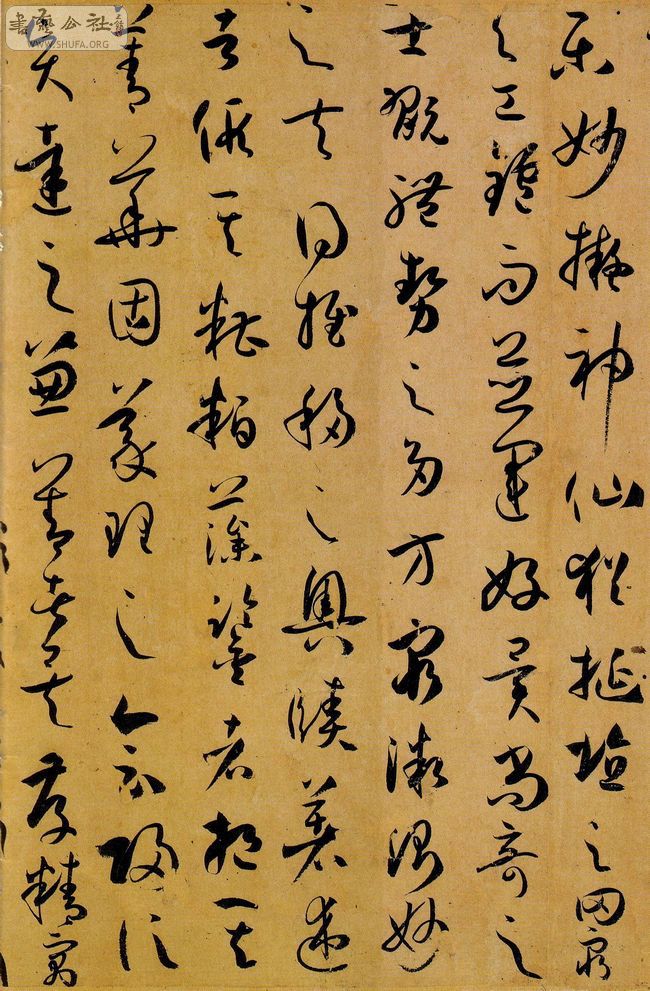 樂妙擬神仙猶埏埴之罔窮
與工鑪而並運好異尚奇之
士翫體勢之多方窮微測妙
之夫得推移之奧賾著述
者假其糟粕藻鑒者挹其
菁華固義理之會歸信
賢達之兼善者矣存精寓
書藝公社
WWW.SHUFA.ORG